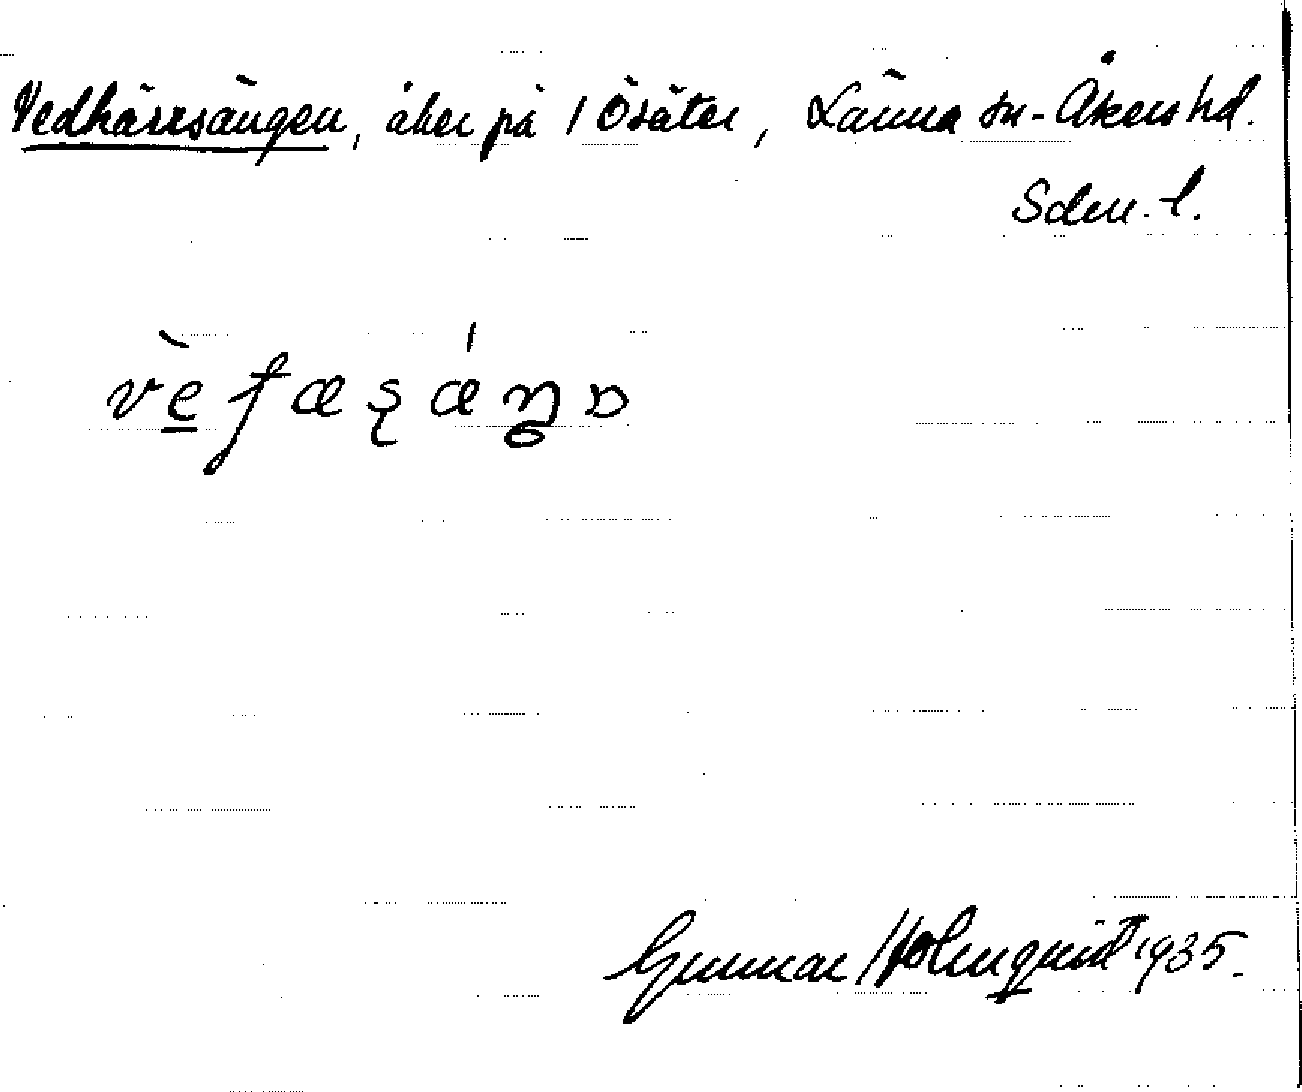 Vedkärrsängen, åker på 1 Ösäter, Länna sn - Åkers hd.
Sdm. l.
Gunnar Holmquist 1935.